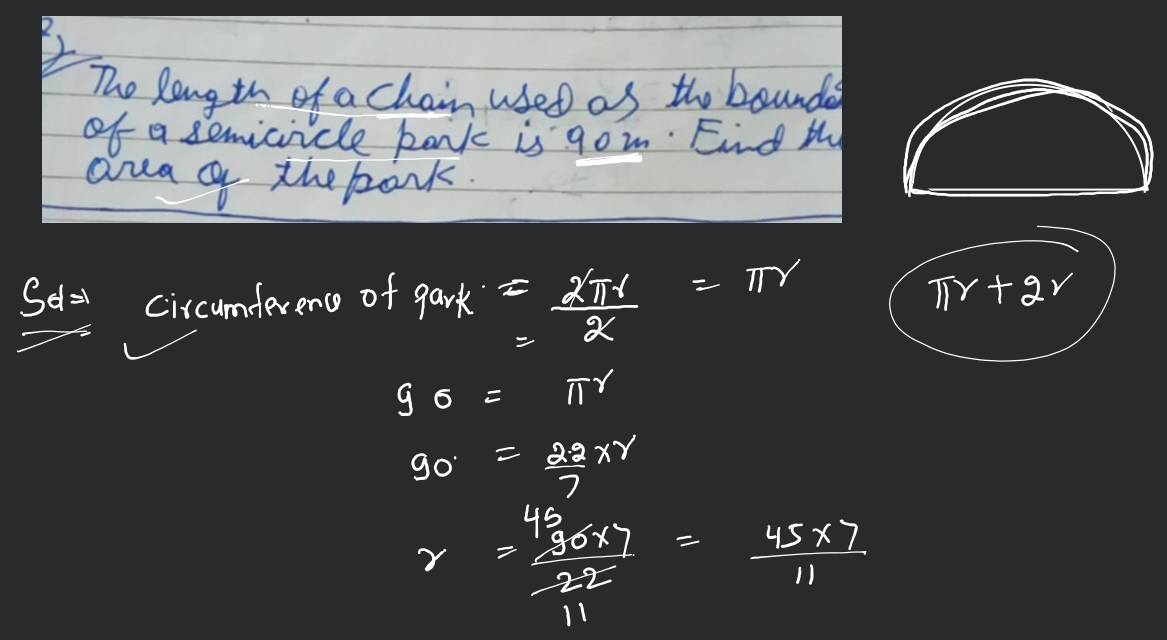 2)
The length of a Chain used as the bounda
of a semicircle park is 90m. Find the
area of the park.
πr + 2r
Sol⇒ Circumference of park = 2πr / 2 = πr
=
90 = πr
90 = 22/7 × r
r = 45 90×7 / 22 11 = 45×7 / 11